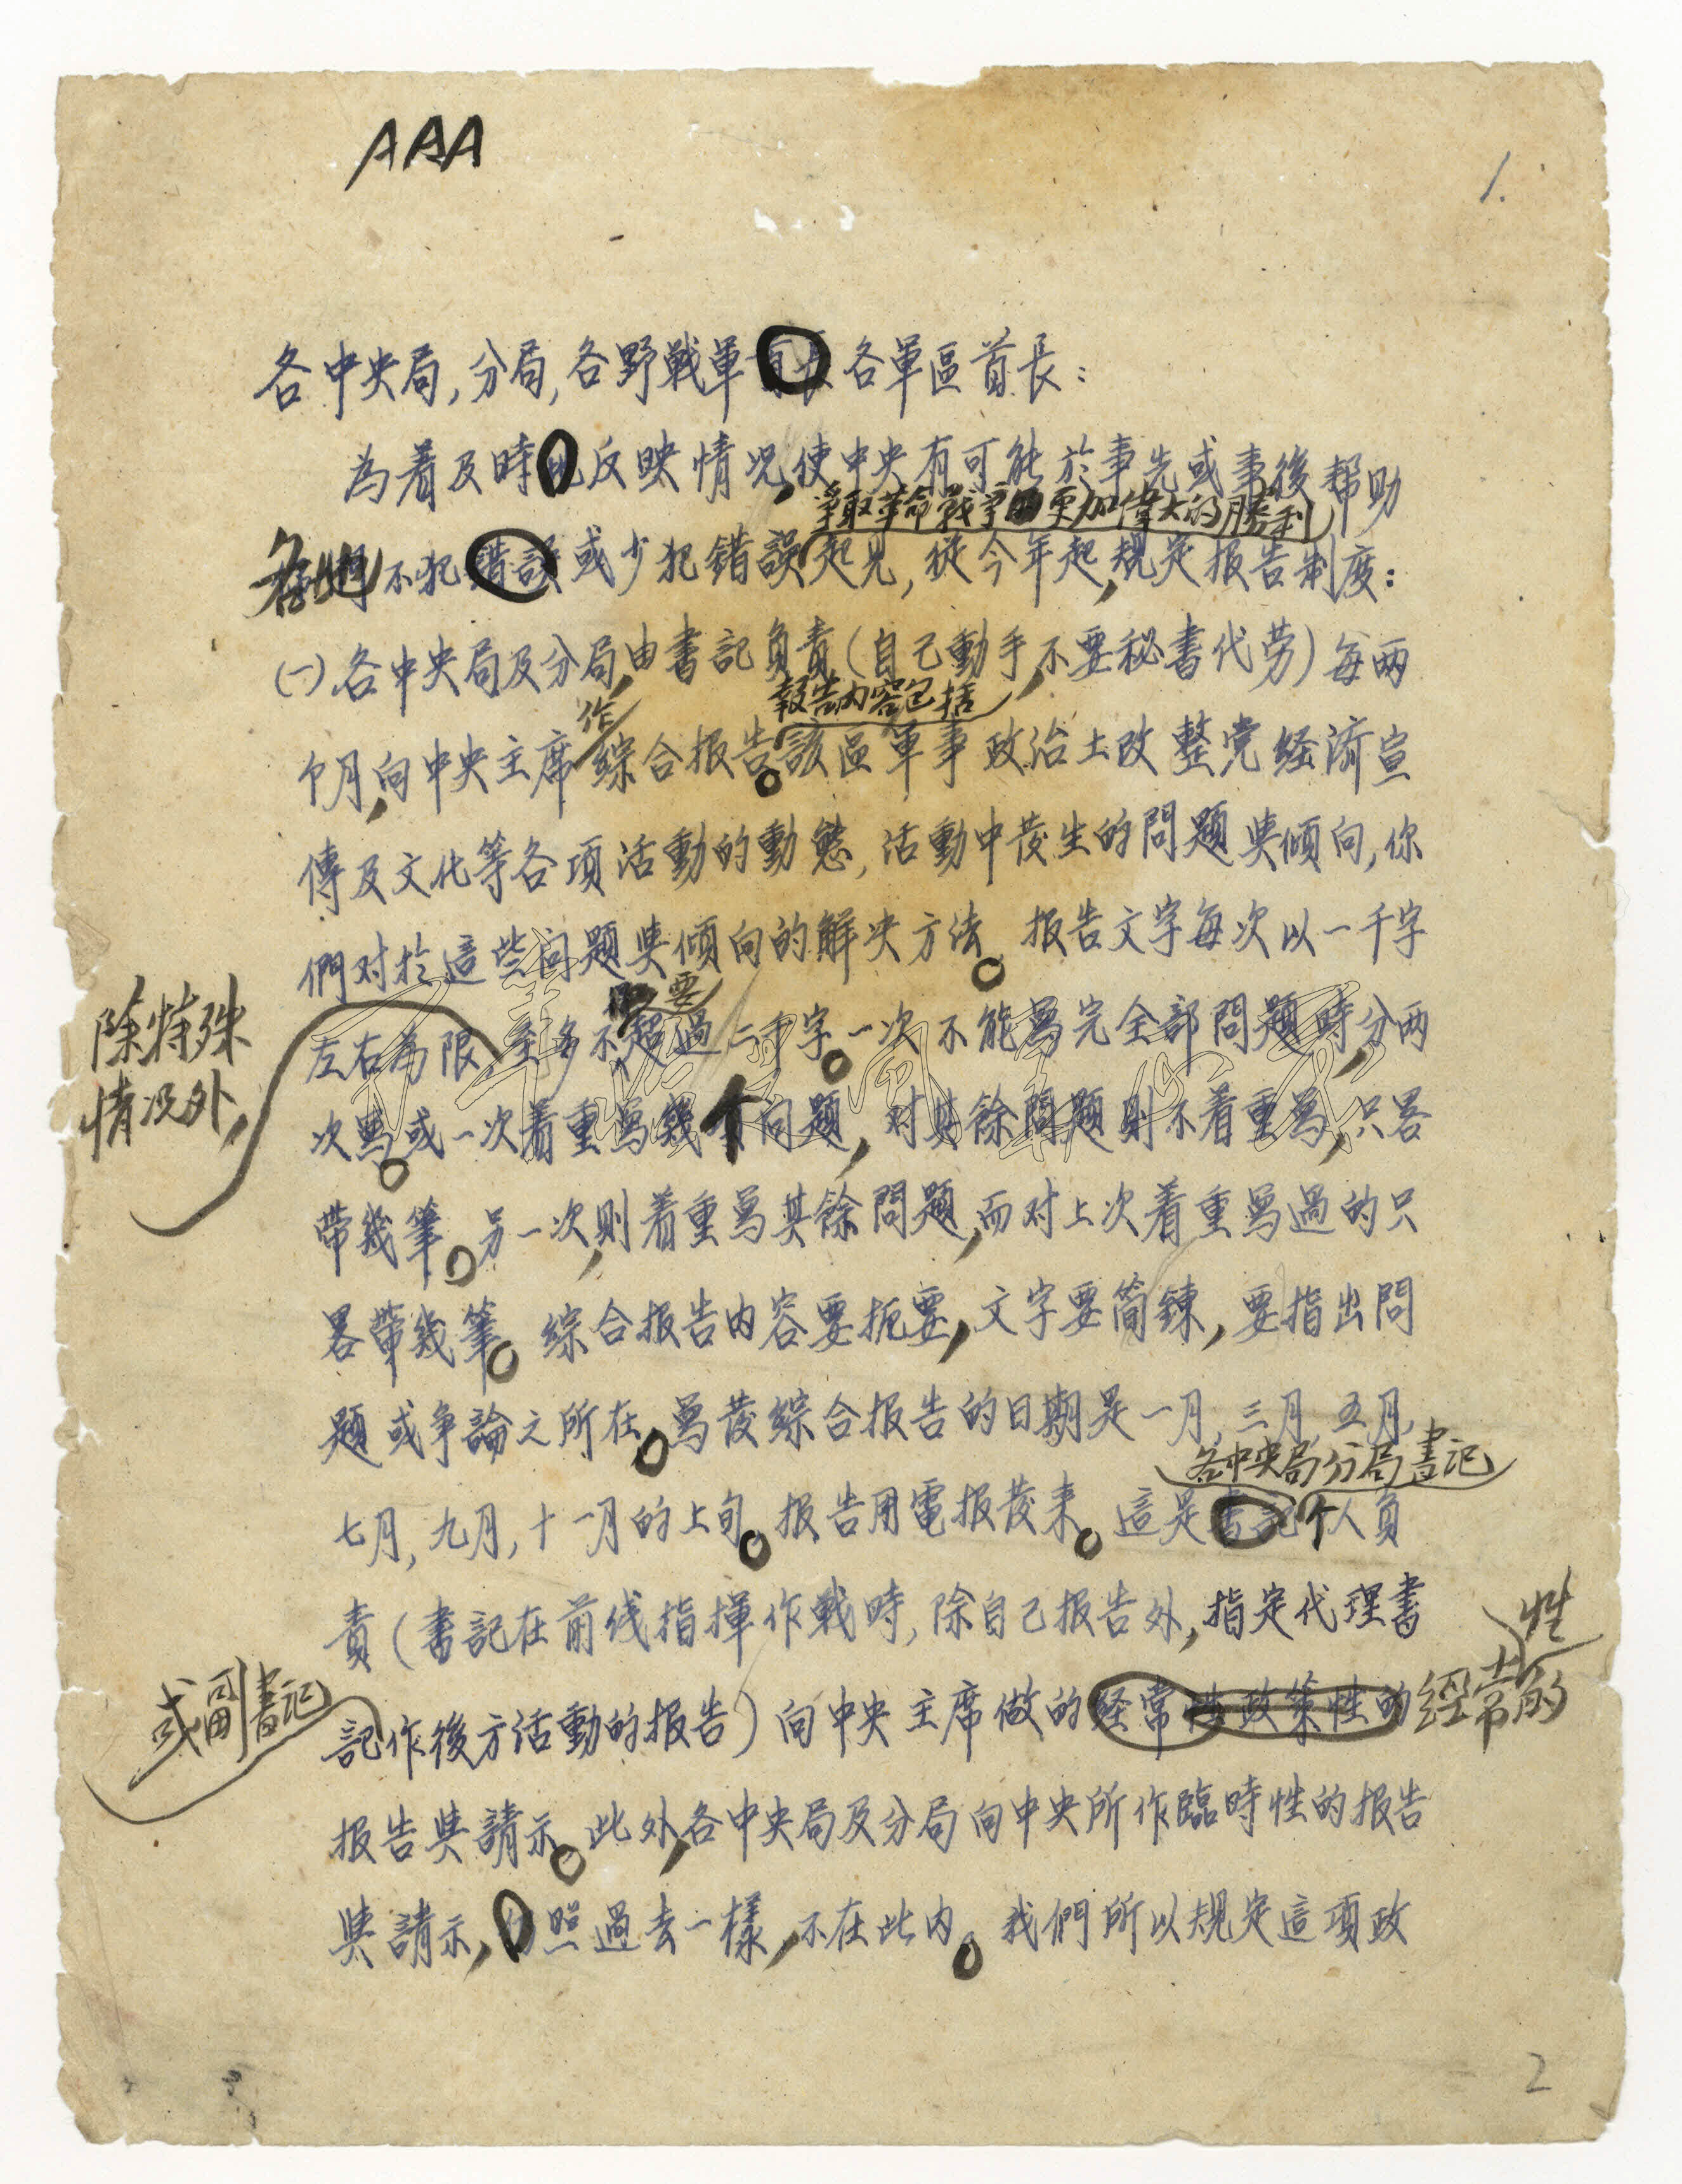 AAA
1.
各中央局,分局,各野戰軍各軍區首長:
為着及時反映情况,使中央有可能於事先或事後帮助
爭取革命戰爭的更加偉大的勝利
各地不犯錯誤或少犯錯誤起見,從今年起,規定报告制度:
(一)各中央局及分局,由書記負責(自己動手,不要秘書代劳)每兩
作
報告內容包括
个月,向中央主席綜合报告。該區軍事政治土改整党経济宣
傳及文化等各項活動的動態,活動中發生的問題與傾向,你
們对於這些问題與傾向的解决方法。报告文字每次以一千字
要
除特殊
情况外,
左右為限,至多不超過二千字。一次不能寫完全部問題時,分兩
次寫。或一次着重寫幾个问題,对其餘問題則不着重寫,只畧
帶幾筆。另一次,則着重寫其餘問題,而对上次着重寫過的只
畧帶幾筆。綜合报告内容要扼要,文字要简鍊,要指出問
題或争論之所在。寫發綜合报告的日期是一月,三月,五月,
各中央局分局書記
七月,九月,十一月的上旬。报告用電报發来。這是个人負
責(書記在前线指揮作戰時,除自己报告外,指定代理書
性
或副書記
記作後方活動的报告)向中央主席做的経常性政策性的經常的
报告與請示。此外,各中央局及分局向中央所作臨時性的报告
與請示,照過去一樣,不在此内。我們所以規定這項政
2